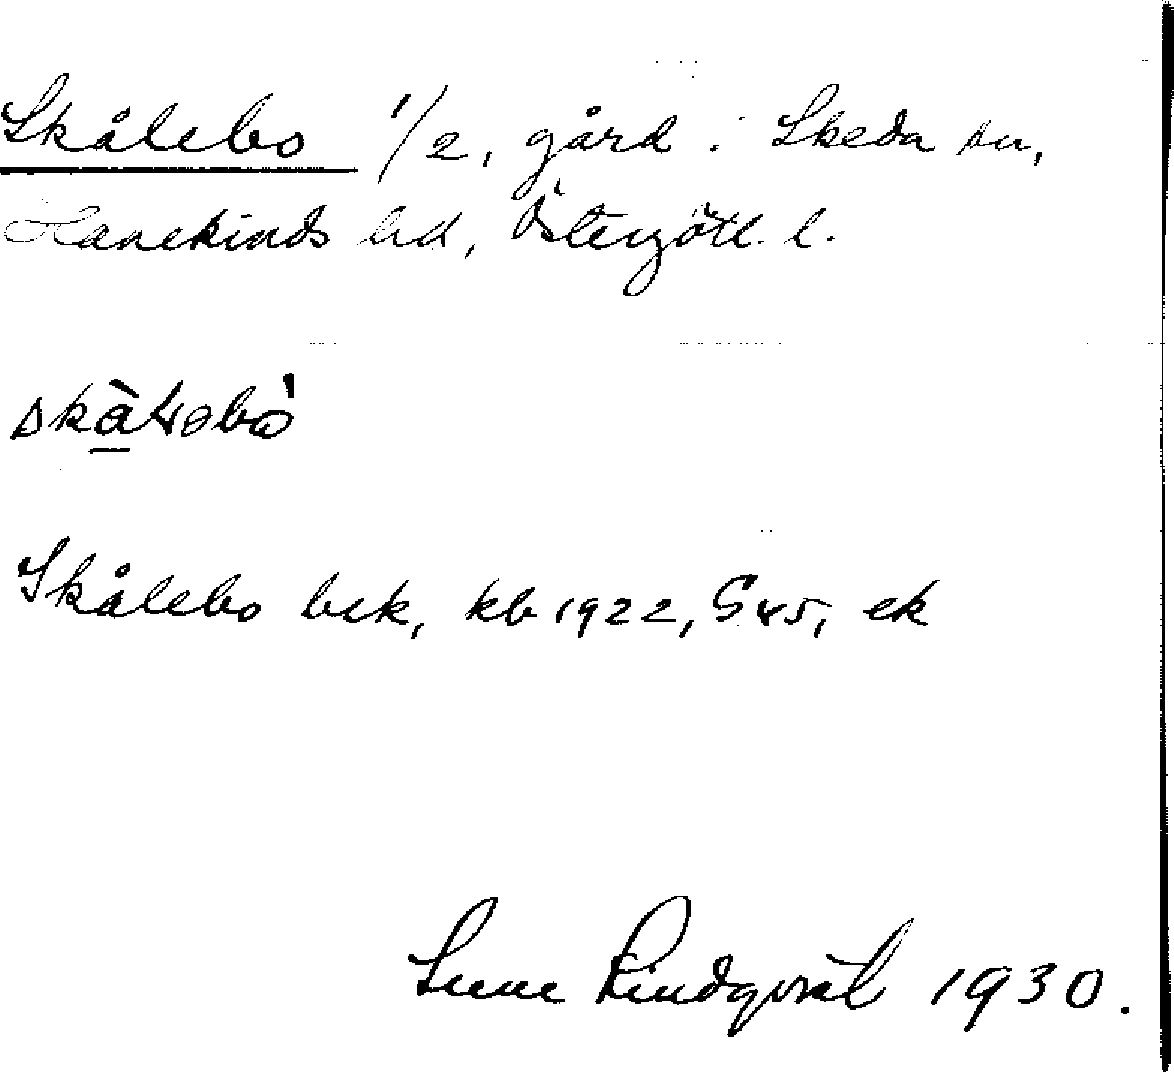 Skålebo 1/2, gård i Skeda sn,
Hanekinds hd, Östergötl. l.
Skålebo bek, kb 1922, S 45, ek
Sune Lindqvist 1930.